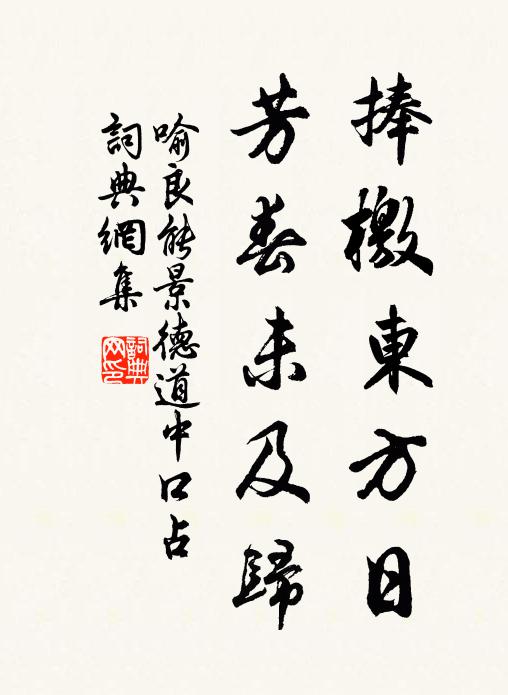 捧檄東方日
芳春未及歸
喻良能景德道中口占
詞典網集
詞典網印